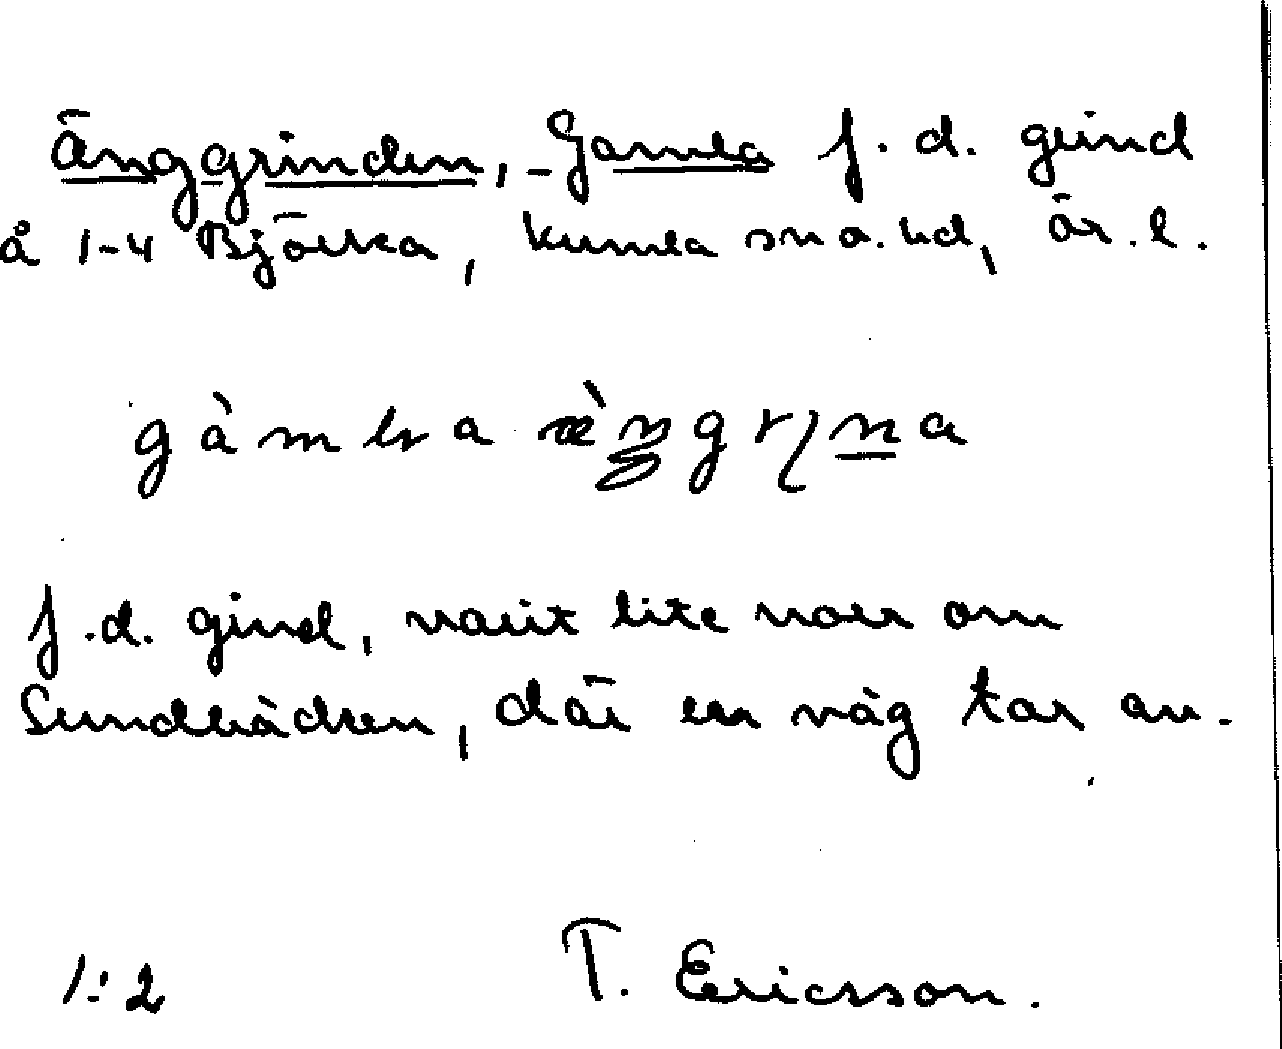 Änggrinden, Gamla f. d. grind
å 1-4 Björka, Kumla sn o. hd, Ör. l.
gàmbla æ̀ŋgrɩna
f.d. grind, varit lite norr om
där en väg tar av.
1:2 T. Ericsson.